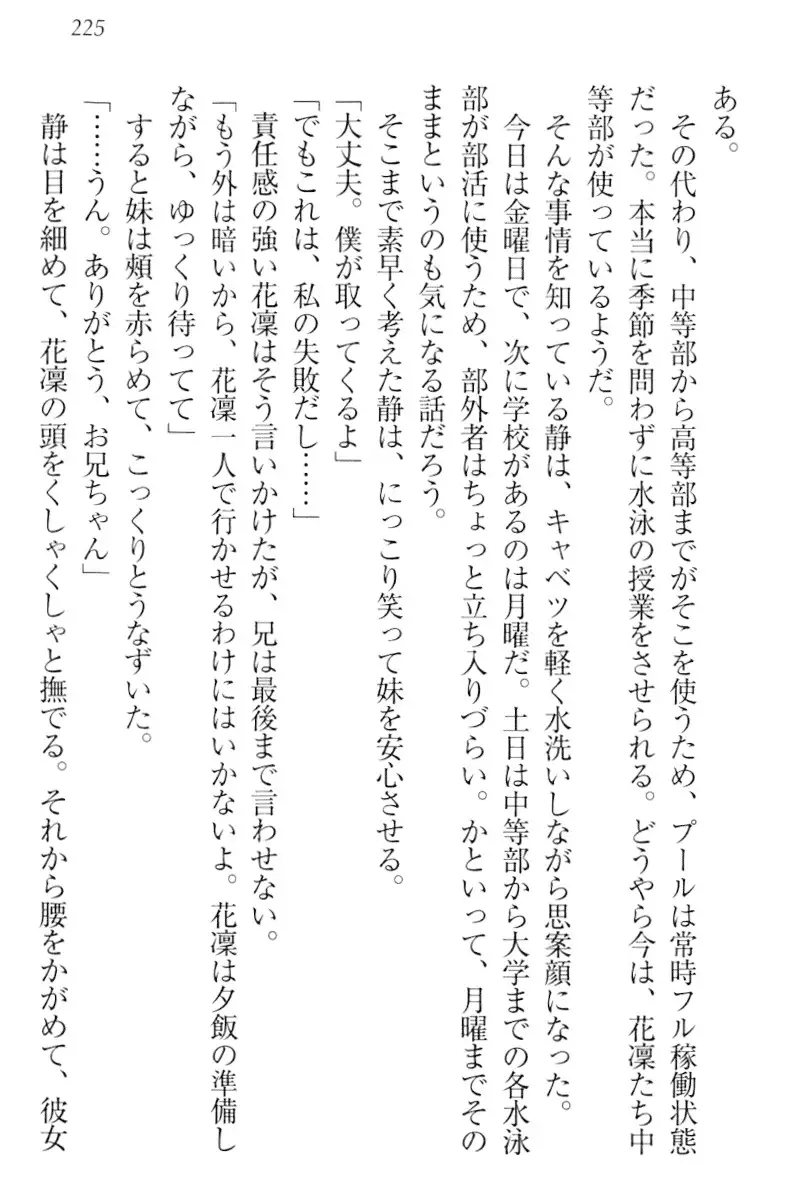 225
ある。
　その代わり、中等部から高等部までがそこを使うため、プールは常時フル稼働状態
だった。本当に季節を問わずに水泳の授業をさせられる。どうやら今は、花凛たち中
等部が使っているようだ。
　そんな事情を知っている静は、キャベツを軽く水洗いしながら思案顔になった。
　今日は金曜日で、次に学校があるのは月曜だ。土日は中等部から大学までの各水泳
部が部活に使うため、部外者はちょっと立ち入りづらい。かといって、月曜までその
ままというのも気になる話だろう。
　そこまで素早く考えた静は、にっこり笑って妹を安心させる。
「大丈夫。僕が取ってくるよ」
「でもこれは、私の失敗だし……」
　責任感の強い花凛はそう言いかけたが、兄は最後まで言わせない。
「もう外は暗いから、花凛一人で行かせるわけにはいかないよ。花凛は夕飯の準備し
ながら、ゆっくり待ってて」
　すると妹は頬を赤らめて、こっくりとうなずいた。
「……うん。ありがとう、お兄ちゃん」
　静は目を細めて、花凛の頭をくしゃくしゃと撫でる。それから腰をかがめて、彼女